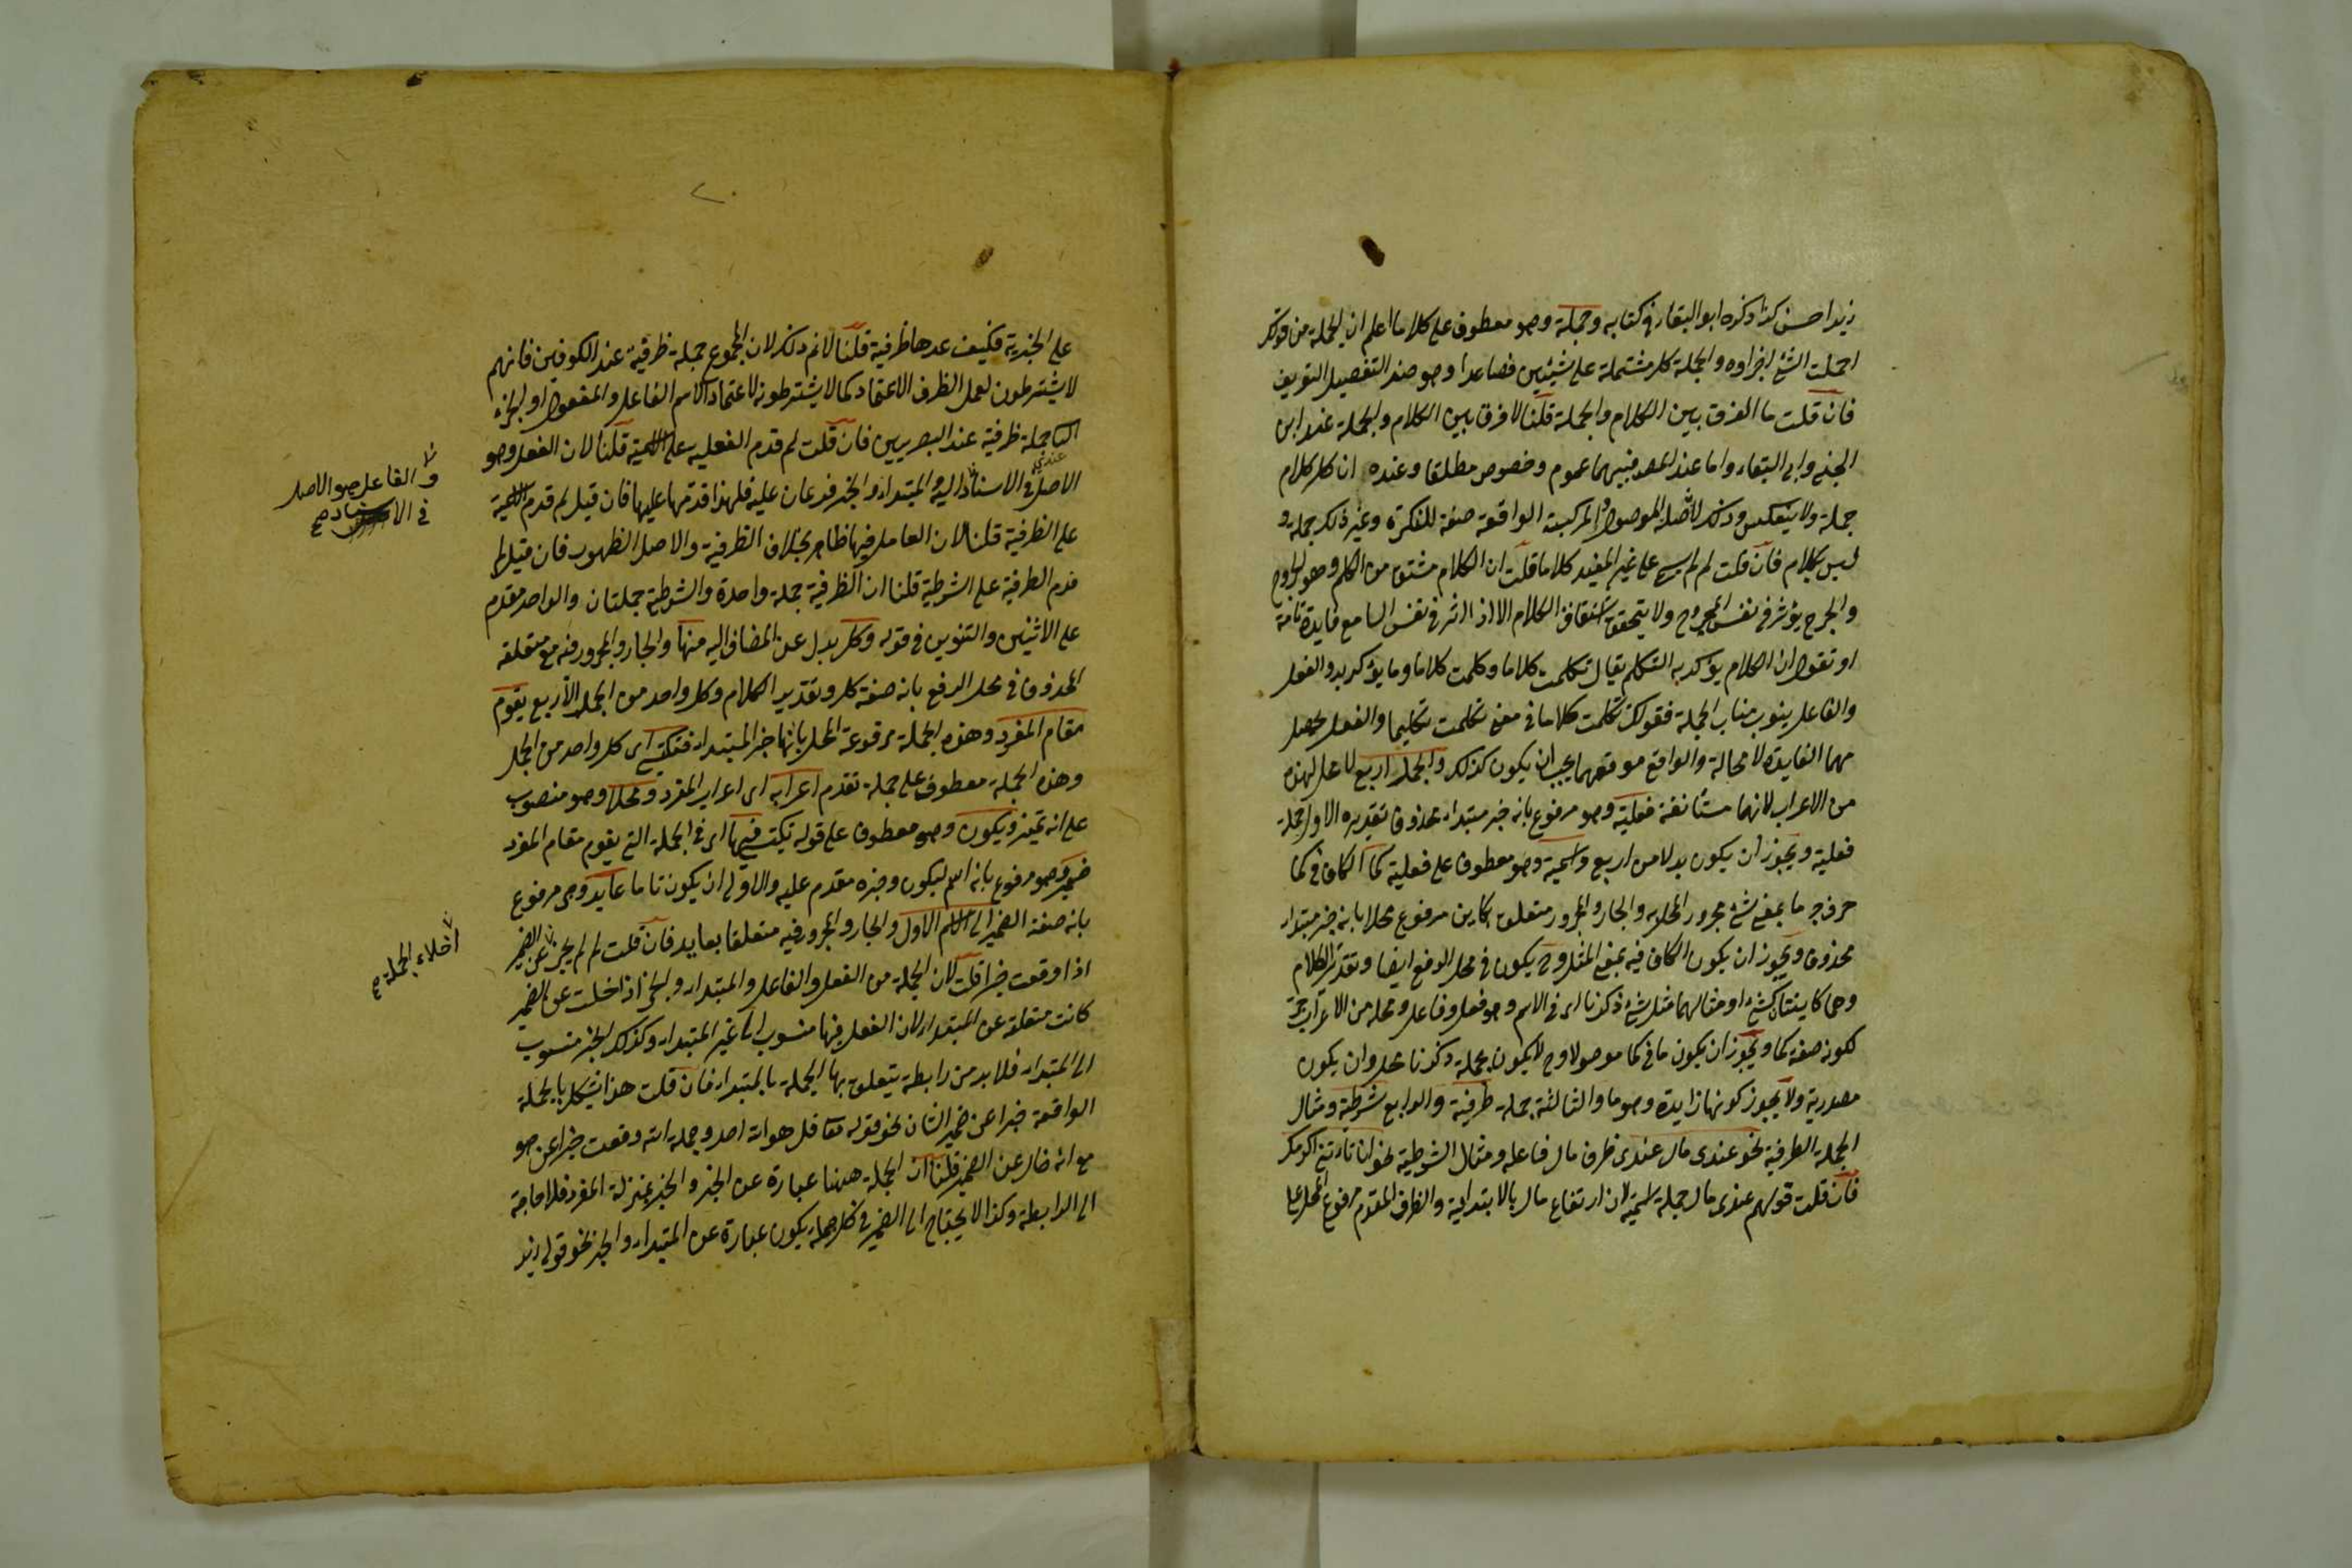 زيدا حسن كذا ذكره ابو البقاء في كتابه وجملة وهو معطوف على كلاما اعلم ان الجملة من قولك
اجملت الشئ اجزاوه والجملة كل مشتملة على شيئين فصاعدا وهو ضد التفصيل
فان قلت ما الفرق بين الكلام والجملة قلنا لا فرق بين الكلام والجملة عند ابن
الجني وابي البقاء واما عند المصـ فبينهما عموم وخصوص مطلقا وعنده ان كل كلام
جملة ولا ينعكس وذلك لان صلة الموصول والمركبة الواقعة صفة للنكرة وغير ذلك جملة و
ليس بكلام فان قلت لم لم يسم على غير المفيد كلاما قلت ان الكلام مشتق من الكلم وهو الجرح
والجرح يؤثر في نفس المجروح ولا يتحقق اشتقاق الكلام الا اذا اثر في نفس السامع فايدة تامة
او نقول ان الكلام يؤكد به التكلم يقال تكلمت كلاما وكلمت كلاما وما يؤكد به والفعل
والفاعل ينوب مناب الجملة فقولك تكلمت كلاما في معنى تكلمت تكليما والفعل يحصل
منهما الفايدة لا محالة والواقع موقعهما يجب ان يكون كذلك والجمل اربع لا محل لهذه
من الاعراب لانها مستأنفة فعلية وهو مرفوع بانه خبر مبتداء محذوف تقديره الاول جملة
فعلية ويجوز ان يكون بدلا من اربع واسمية وهو معطوف على فعلية كما الكاف في كما
حرف جر ما بمعنى شئ مجرور المحل به والجار والمجرور متعلق بكاين مرفوع محلا بانه خبر مبتداء
محذوف ويجوز ان يكون الكاف فيه بمعنى المثل وح يكون في محل الرفع ايضا وتقدير الكلام
وهما كاينتان كشئ او مثالهما مثل شئ ذكرنا اى في الاسم وهو فعل وفاعل ومحله من الاعراب جر
لكونه صفة كما ويجوز ان يكون ما في كما موصولا وح لا يكون بجملة ذكرنا محل وان يكون
مصدرية ولا يجوز كونها زايدة وهو ما والثالثة جملة ظرفية والرابع شرطية ومثال
الجملة الظرفية نحو عندى مال عندى ظرف مال فاعله ومثال الشرطية نحو ان تاتنى اكرمك
فان قلت قولهم عندى مال جملة اسمية لان ارتفاع مال بالابتدائية والظرف المقدم مرفوع المحل على
٢٠
على الخبرية فكيف عدها ظرفية قلنا لا نم ذلك لان المجموع جملة ظرفية عند الكوفيين فانهم
لا يشترطون لعمل الظرف الاعتماد كما لا يشترطونه لاعتماد الاسم الفاعل والمفعول
جملة ظرفية عند البصريين فان قلت لم قدم الفعلية على الاسمية قلنا لان الفعل وهو
عندى
الاصل في الاسناد اليه والمبتداء والخبر فرعان عليه فلهذا قدمها عليها فان قيل لم قدم الاسمية
على الظرفية قلنا لان العامل فيها ظاهر بخلاف الظرفية والاصل الظهور فان قيل لم
قدم الظرفية على الشرطية قلنا ان الظرفية جملة واحدة والشرطية جملتان والواحد مقدم
على الاثنين والتنوين في قوله وكل بدل عن المضاف اليه منها والجار والمجرور فيه مع متعلقه
المحذوف في محل الرفع بانه صفة كل وتقدير الكلام وكل واحد من الجمل الاربع يقوم
مقام المفرد وهذه الجملة مرفوعة المحل بانها خبر المبتداء فتكتسى اى كل واحد من الجمل
وهذه الجملة معطوف على جملة تقدم اعرابه اى اعراب المفرد ومحلا وهو منصوب
على انه تميز ويكون وهو معطوف على قوله تكتسى فيها اى في الجملة التى يقوم مقام المفرد
ضمير وهو مرفوع بانه اسم ليكون وخبره مقدم عليه والاولى ان يكون تاما عايد وهى مرفوع
بانه صفة الضمير الى الاسم الاول والجار والمجرور فيه متعلقا بعايد فان قلت لم لم يجز عن الضمير
اذا وقعت خبرا قلت لان الجملة من الفعل والفاعل والمبتداء والخبر اذا خلت عن الضمير
كانت متعلقة عن المبتداء لان الفعل فيها منسوب الى غير المبتداء وكذلك الخبر منسوب
الى المبتداء فلا بد من رابطة يتعلق بها الجملة بالمبتداء فان قلت هذا يشكل بالجملة
الواقعة خبرا عن ضمير الشان نحو قوله تعا قل هو الله احد وجملة الله وقعت خبرا عن هو
مع انه خال عن الضمير قلنا ان الجملة ههنا عبارة عن الخبر والخبر بمنزلة المفرد فلا حاجة
الى الرابطة وكذا لا يحتاج الى الضمير في كل جملة يكون عبارة عن المبتداء والخبر نحو قولى زيد
والفاعل هو الاصل
في الاسناد صح
اخلاء الجملة صح